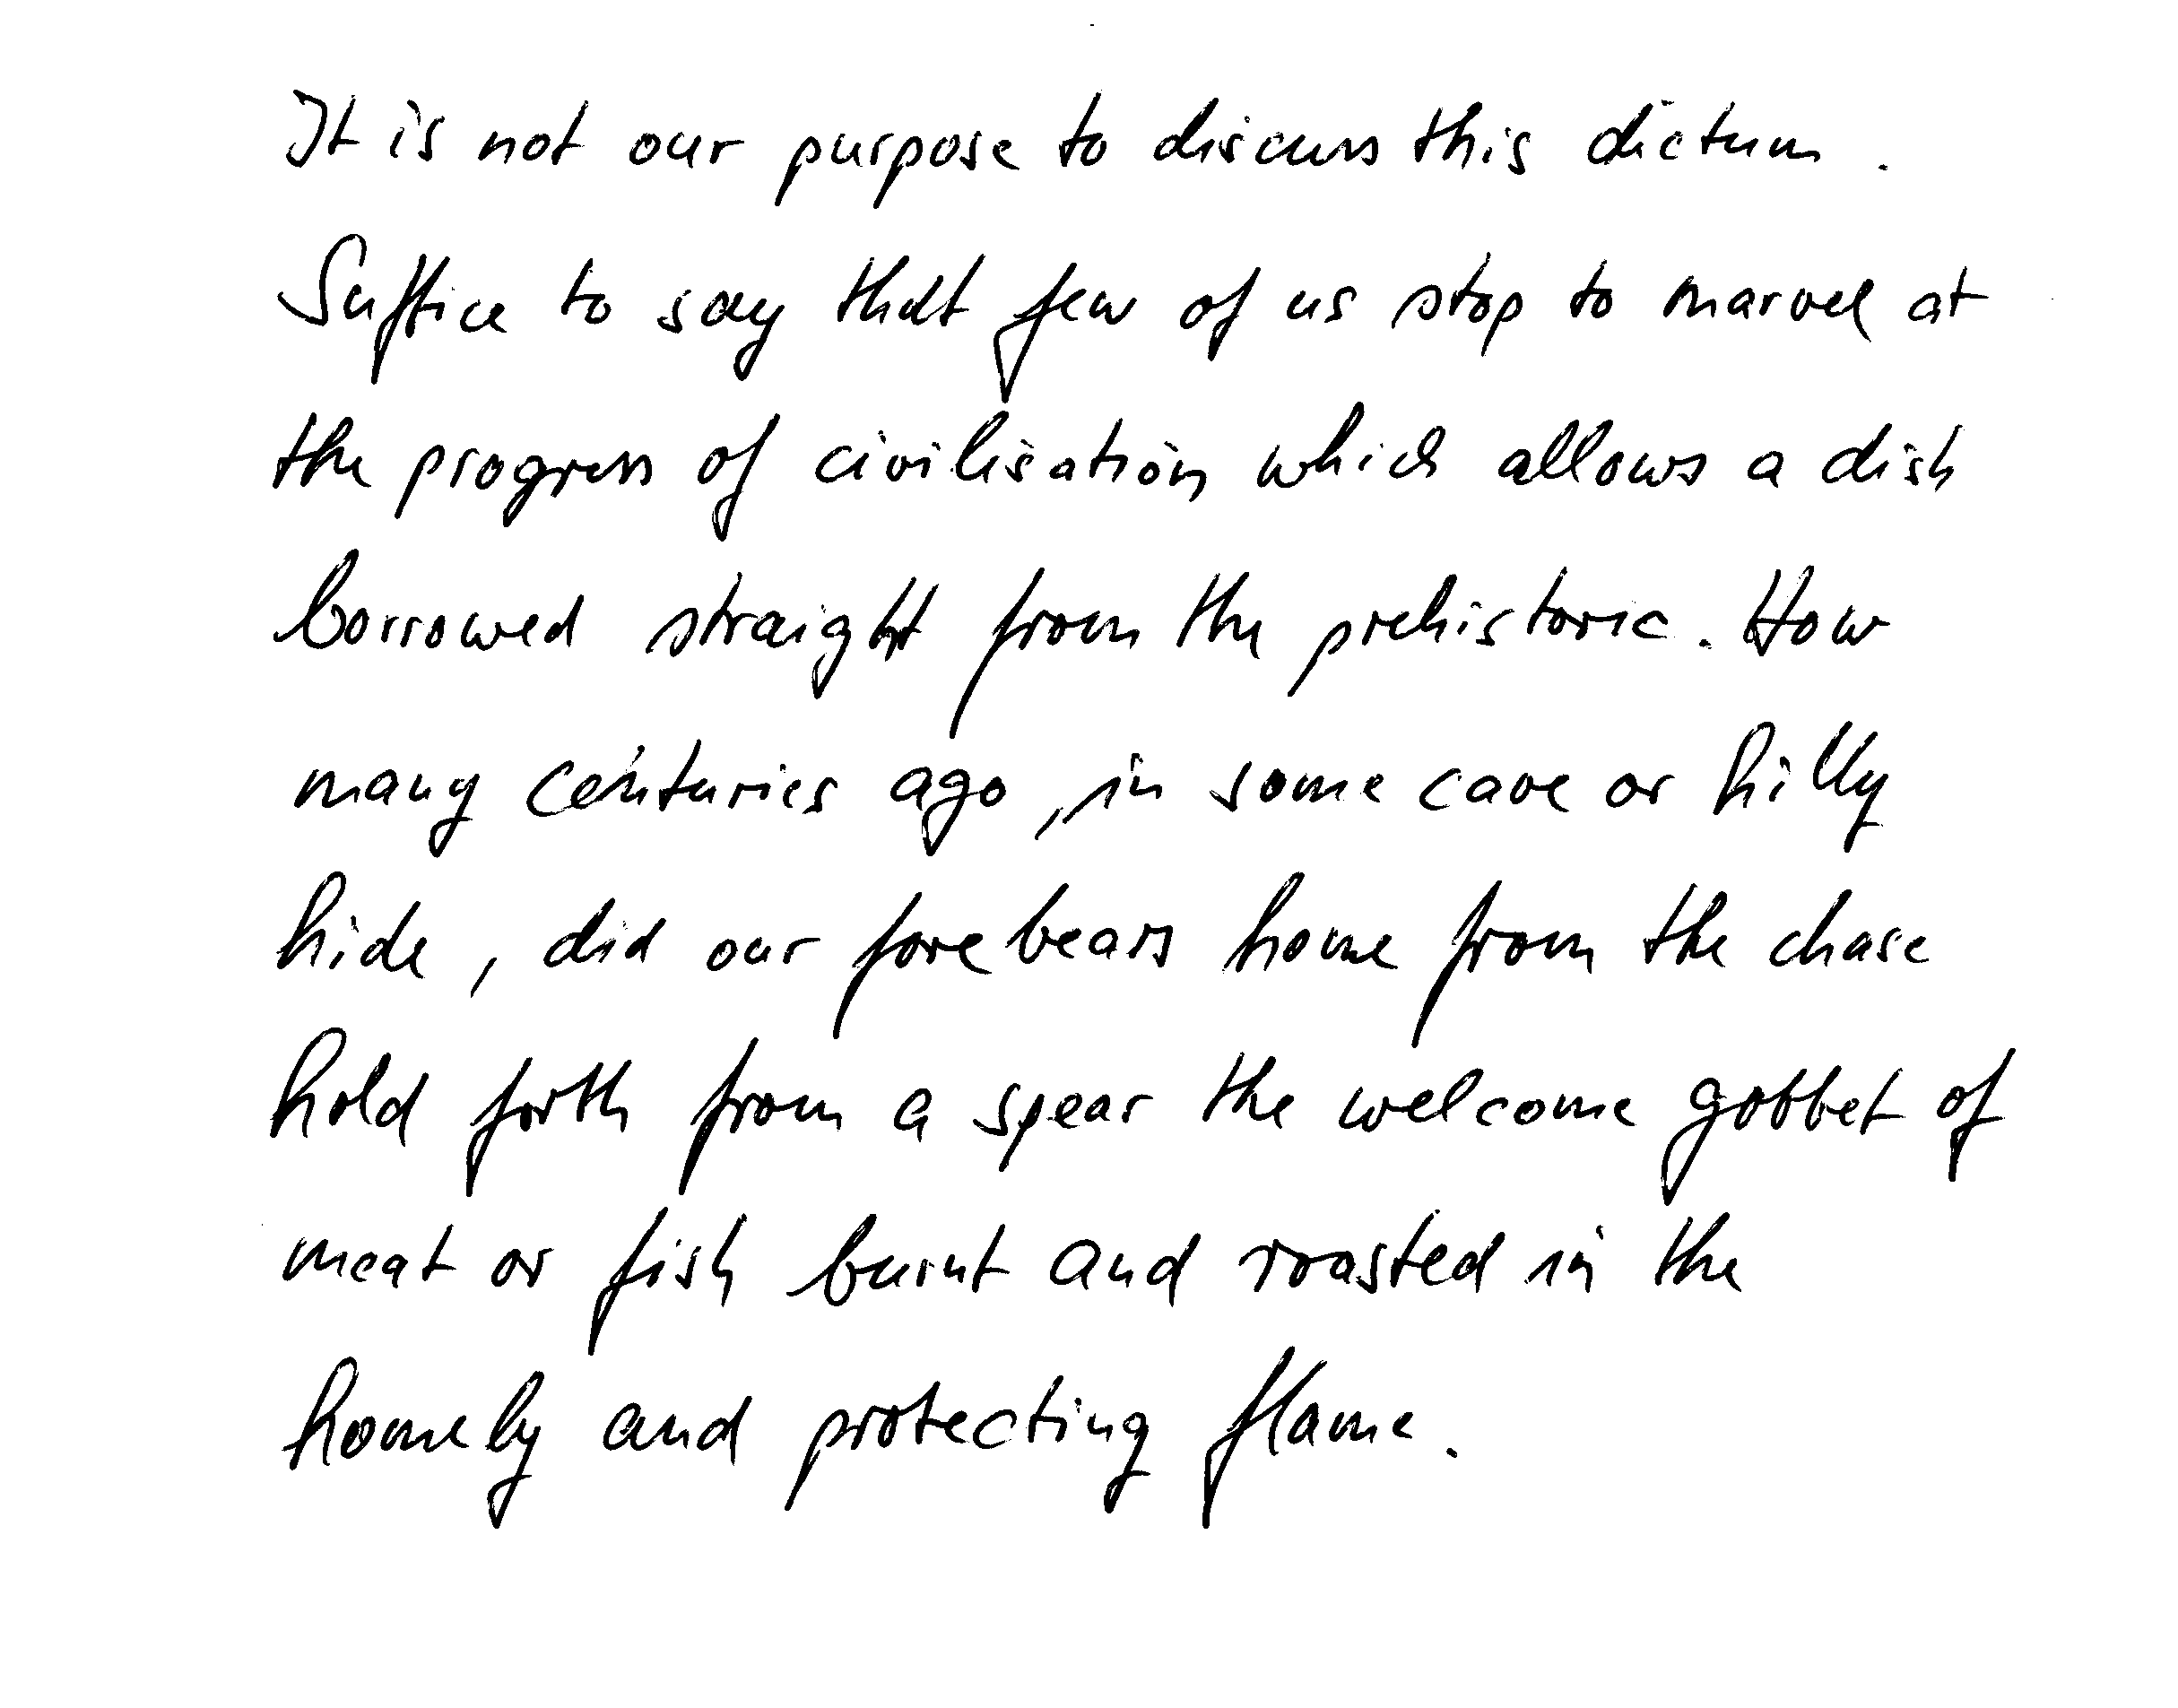 It is not our purpose to discuss this dictum.
Suffice to say that few of us stop to marvel at
the progress of civilisation which allows a dish
borrowed straight from the prehistoric. How
many centuries ago, in some cave or hilly
hide, did our forebears home from the chase
hold forth from a spear the welcome gobbet of
meat or fish burnt and roasted in the
homely and protecting flame.